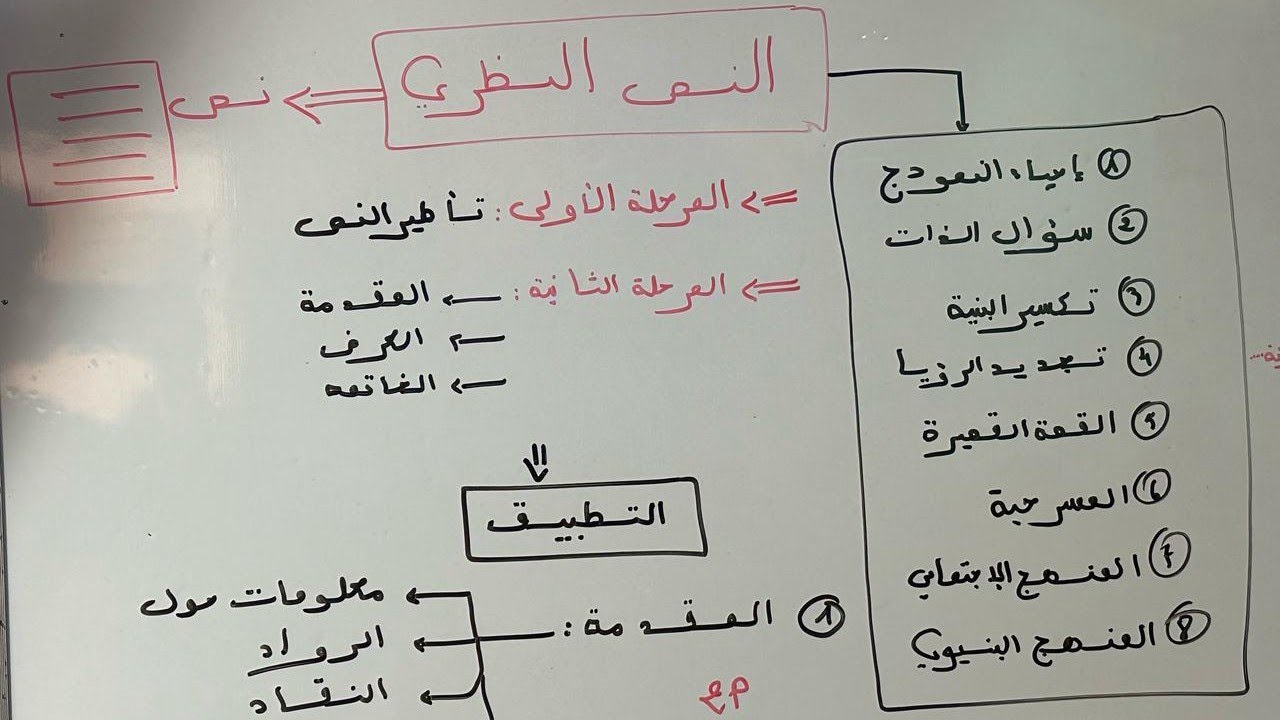 النص النظري
نص
المرحلة الأولى: تأطير النص
المرحلة الثانية: المقدمة
العرض
الخاتمة
التطبيق
① المقدمة:
معلومات حول
الرواد
النقاد
① إحياء النموذج
② سؤال الذات
③ تكسير البنية
④ تجديد الرؤيا
⑤ القصة القصيرة
⑥ المسرحية
⑦ المنهج الاجتماعي
⑧ المنهج البنيوي